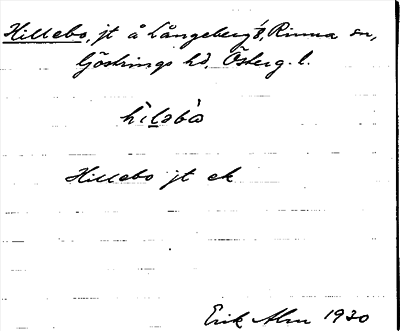 Hillebo, jt å Långeberg s., Rinna sn,
Göstrings hd, Österg. l.
hìləbò
Hillebo jt ek
Erik Alm 1930